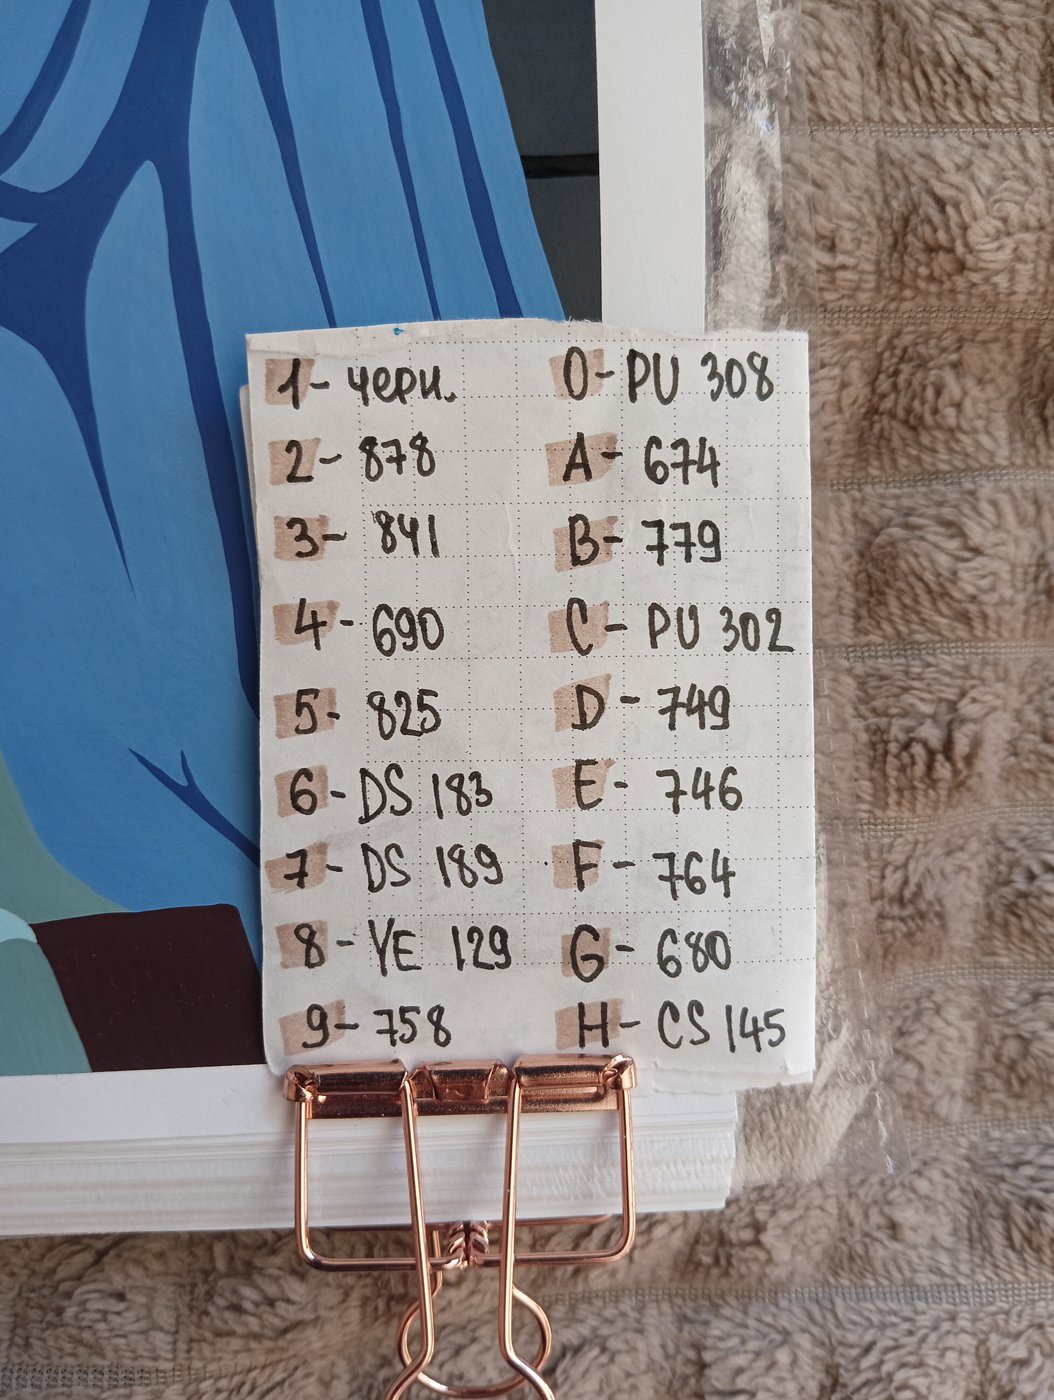 1 - черн.
2 - 878
3 - 841
4 - 690
5 - 825
6 - DS 183
7 - DS 189
8 - YE 129
9 - 758
0 - PU 308
A - 674
B - 779
C - PU 302
D - 749
E - 746
F - 764
G - 680
H - CS 145